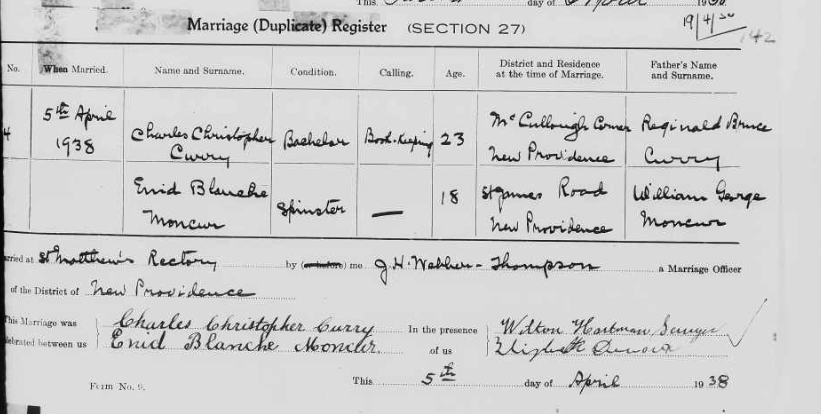 This day of April 19
Marriage (Duplicate) Register (SECTION 27)
19/4/38
142
No. When Married. Name and Surname. Condition. Calling. Age. District and Residence at the time of Marriage. Father's Name and Surname.
4 5th April 1938 Charles Christopher Curry Bachelor Book-Keeping 23 McCullough Corner New Providence Reginald Bruce Curry
Enid Blanche Moncur Spinster — 18 St James Road New Providence William George Moncur
rried at St Matthew's Rectory by me J. H. Webber-Thompson a Marriage Officer
of the District of New Providence
This Marriage was Charles Christopher Curry In the presence Wilton Hartman Sawyer
lebrated between us Enid Blanche Moncur. of us Elizabeth
Form No. 9. This 5th day of April 1938